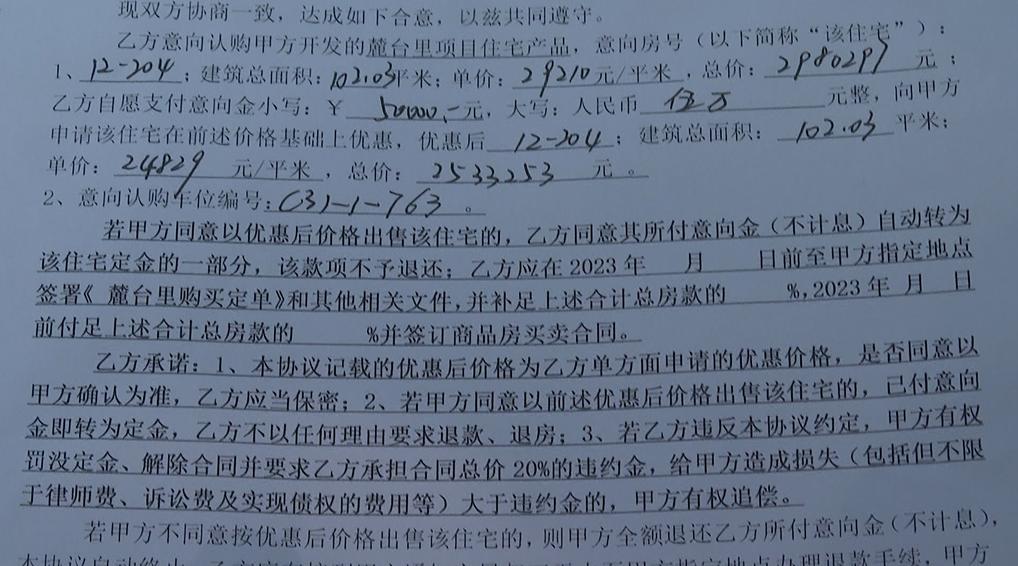 现双方协商一致，达成如下合意，以兹共同遵守。
乙方意向认购甲方开发的麓台里项目住宅产品，意向房号（以下简称“该住宅”）：
1、12-204；建筑总面积：102.03平米；单价：29210元/平米，总价：2980297元；
乙方自愿支付意向金小写：￥50000.-元，大写：人民币伍万元整，向甲方
申请该住宅在前述价格基础上优惠，优惠后12-204；建筑总面积：102.03平米；
单价：24829元/平米，总价：2533253元。
2、意向认购车位编号：(3)-1-763。
若甲方同意以优惠后价格出售该住宅的，乙方同意其所付意向金（不计息）自动转为
该住宅定金的一部分，该款项不予退还；乙方应在2023年 月 日前至甲方指定地点
签署《麓台里购买定单》和其他相关文件，并补足上述合计总房款的 %，2023年 月 日
前付足上述合计总房款的 %并签订商品房买卖合同。
乙方承诺：1、本协议记载的优惠后价格为乙方单方面申请的优惠价格，是否同意以
甲方确认为准，乙方应当保密；2、若甲方同意以前述优惠后价格出售该住宅的，已付意向
金即转为定金，乙方不以任何理由要求退款、退房；3、若乙方违反本协议约定，甲方有权
罚没定金、解除合同并要求乙方承担合同总价20%的违约金，给甲方造成损失（包括但不限
于律师费、诉讼费及实现债权的费用等）大于违约金的，甲方有权追偿。
若甲方不同意按优惠后价格出售该住宅的，则甲方全额退还乙方所付意向金（不计息），
本协议自动终止，乙方应在接到甲方通知之日起
指定地点办理退款手续，甲方